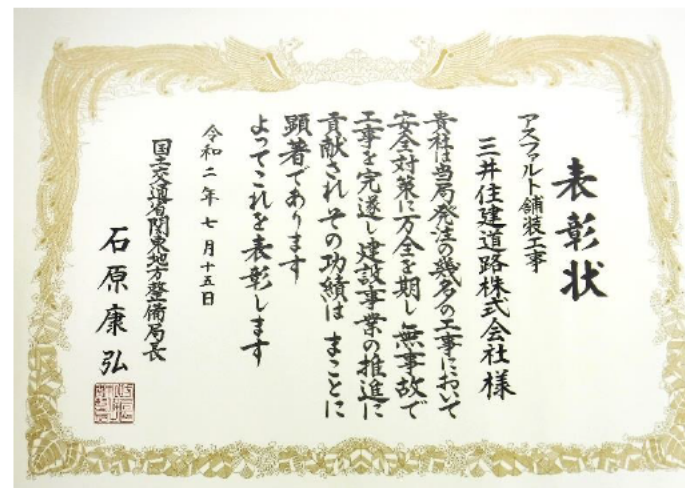 表彰状
アスファルト舗装工事
三井住建道路株式会社様
貴社は当局発注の幾多の工事において
安全対策に万全を期し無事故で
工事を完遂し建設事業の推進に
貢献されその功績はまことに
顕著であります
よってこれを表彰します
令和二年七月十五日
国土交通省関東地方整備局長
石原康弘